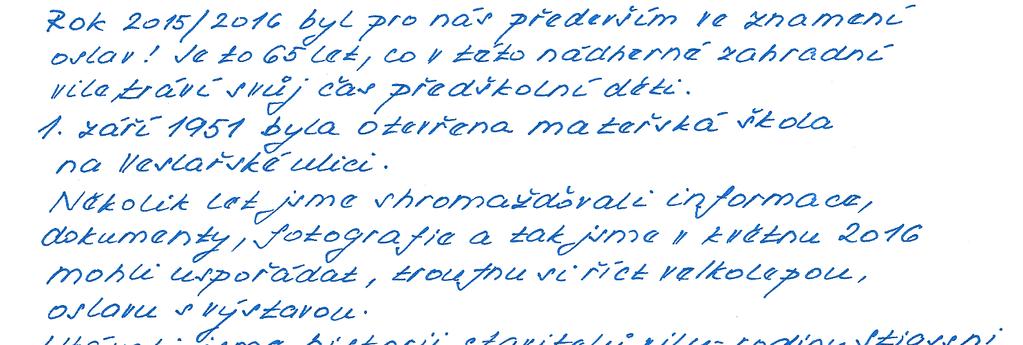 Rok 2015/2016 byl pro nás především ve znamení
oslav! Je to 65 let, co v této nádherné zahradní
vile tráví svůj čas předškolní děti.
1. září 1951 byla otevřena mateřská škola
na Veslařské ulici.
Několik let jsme shromažďovali informace,
dokumenty, fotografie a tak jsme v květnu 2016
mohli uspořádat, troufnu si říct velkolepou,
oslavu s výstavou.
jsme historii stavitelů vily - rodiny Stiassni